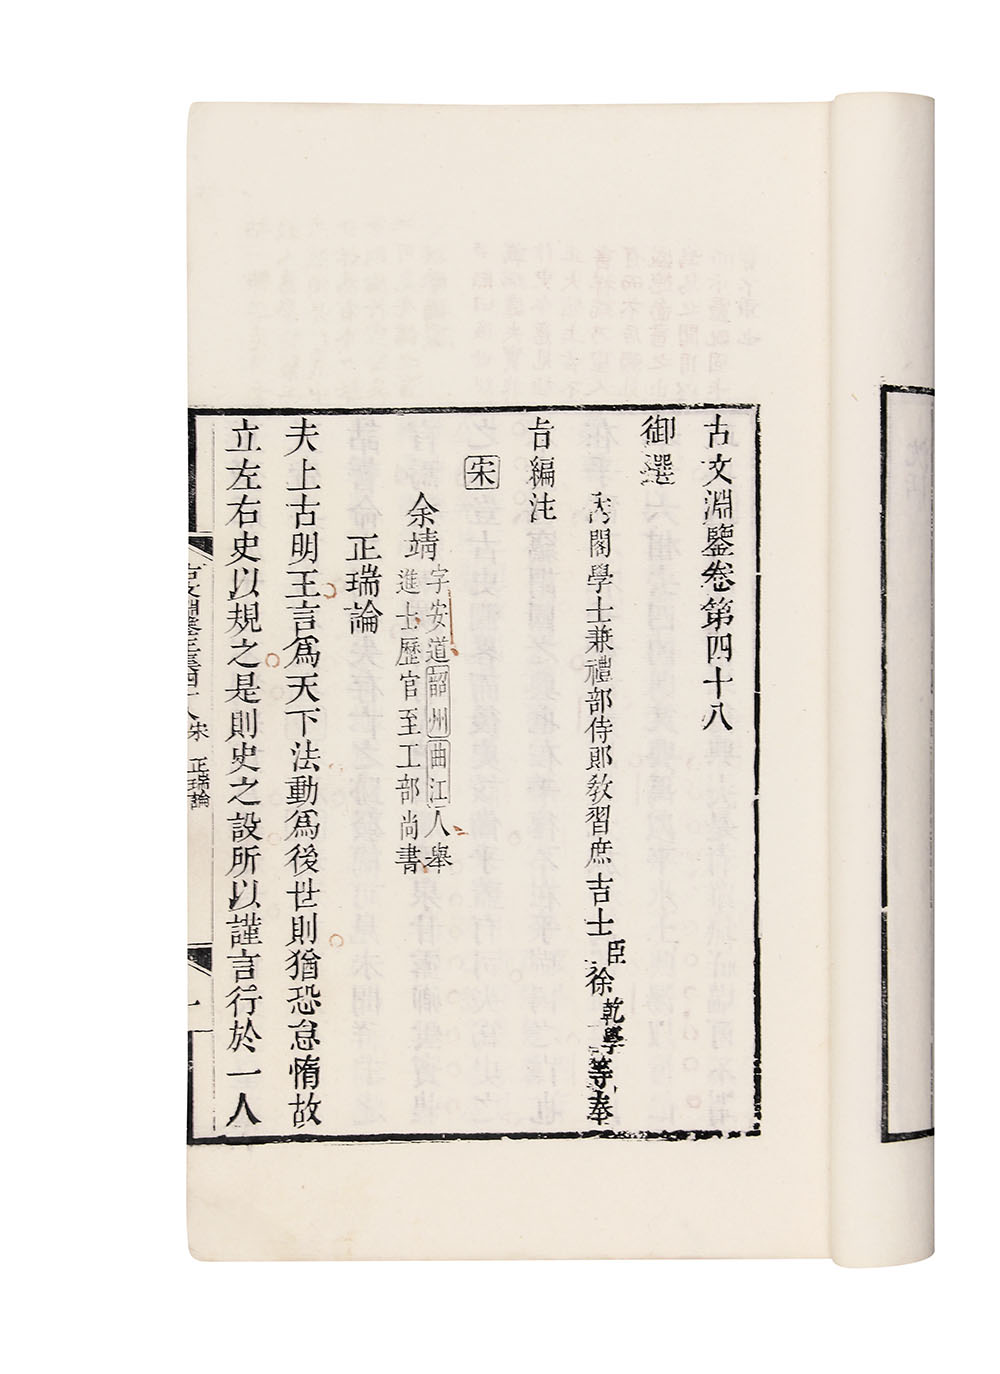 古文淵鑒卷第四十八
御選
內閣學士兼禮部侍郎教習庶吉士臣徐乾學等奉
旨編注
宋
余靖字安道韶州曲江人舉
進士歷官至工部尚書
正瑞論
夫上古明王言爲天下法動爲後世則猶恐怠惰故
立左右史以規之是則史之設所以謹言行於一人
古文淵鑒卷四十八 宋 正瑞論 一